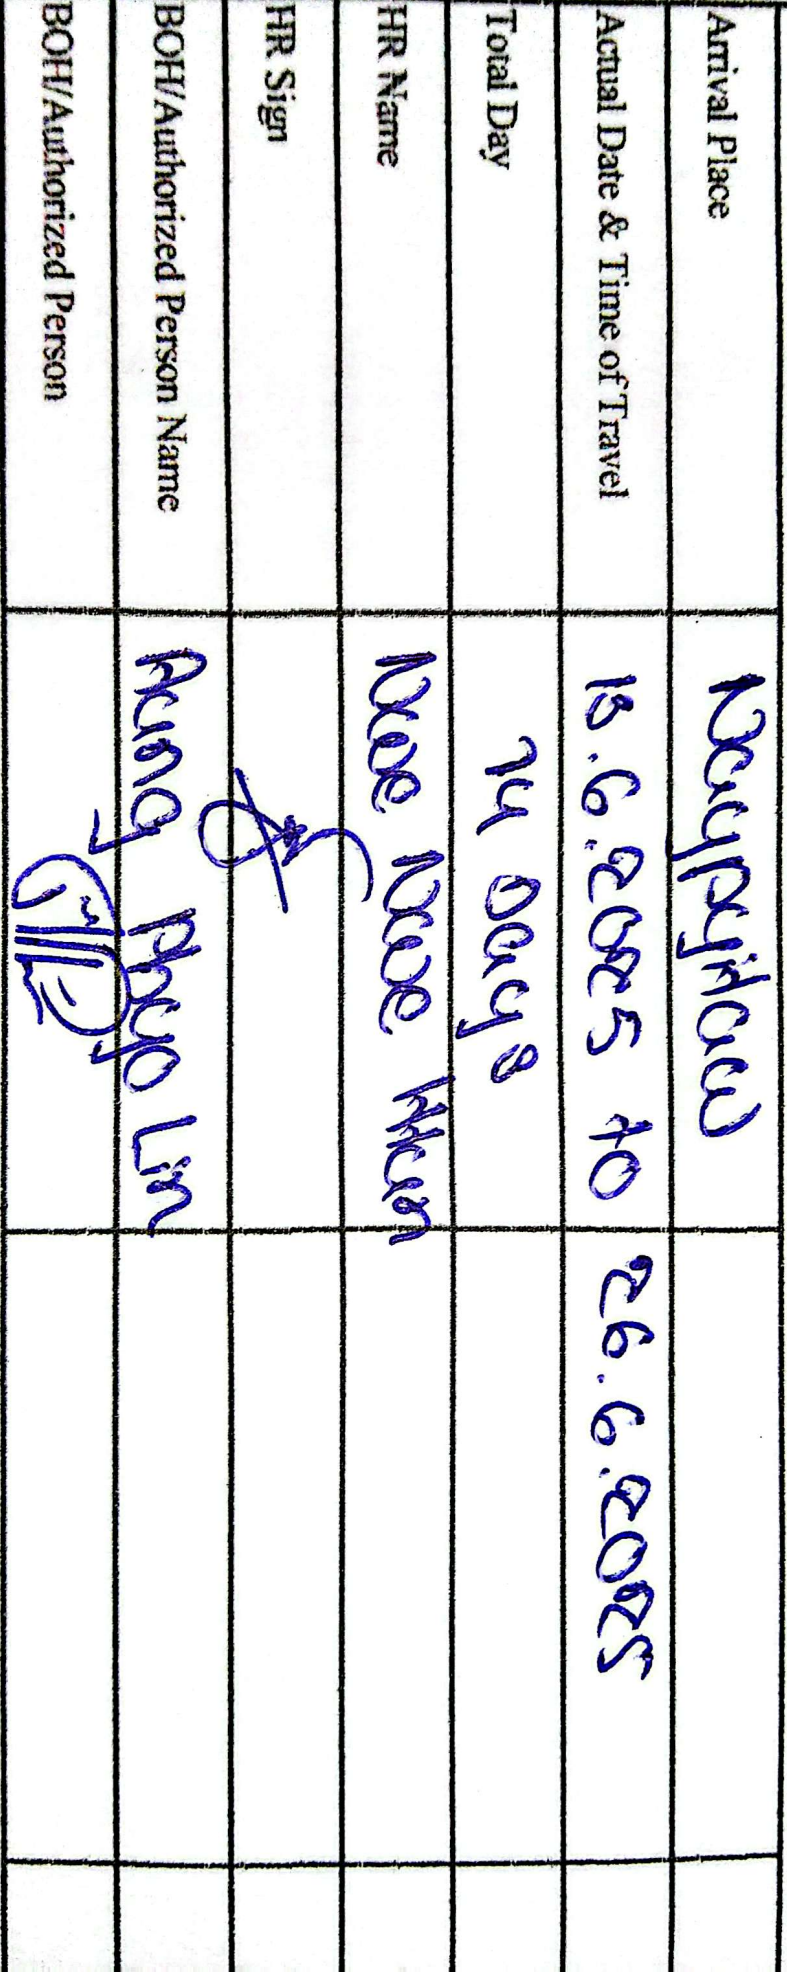 Arrival Place NaypyiHaw
Actual Date & Time of Travel 13.6.2025 to 26.6.2025
Total Day 14 Days
HR Name Nwe Nwe Htun
HR Sign
BOH/Authorized Person Name Aung Phyo Lin
BOH/Authorized Person